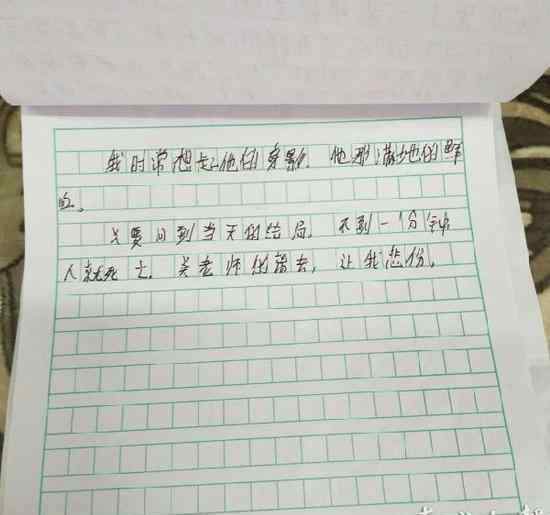 我时常想起他的身影，他那满地的鲜
血。
又要回到当天的结局，不到一分钟
人就死亡，吴老师的离去，让我悲伤。